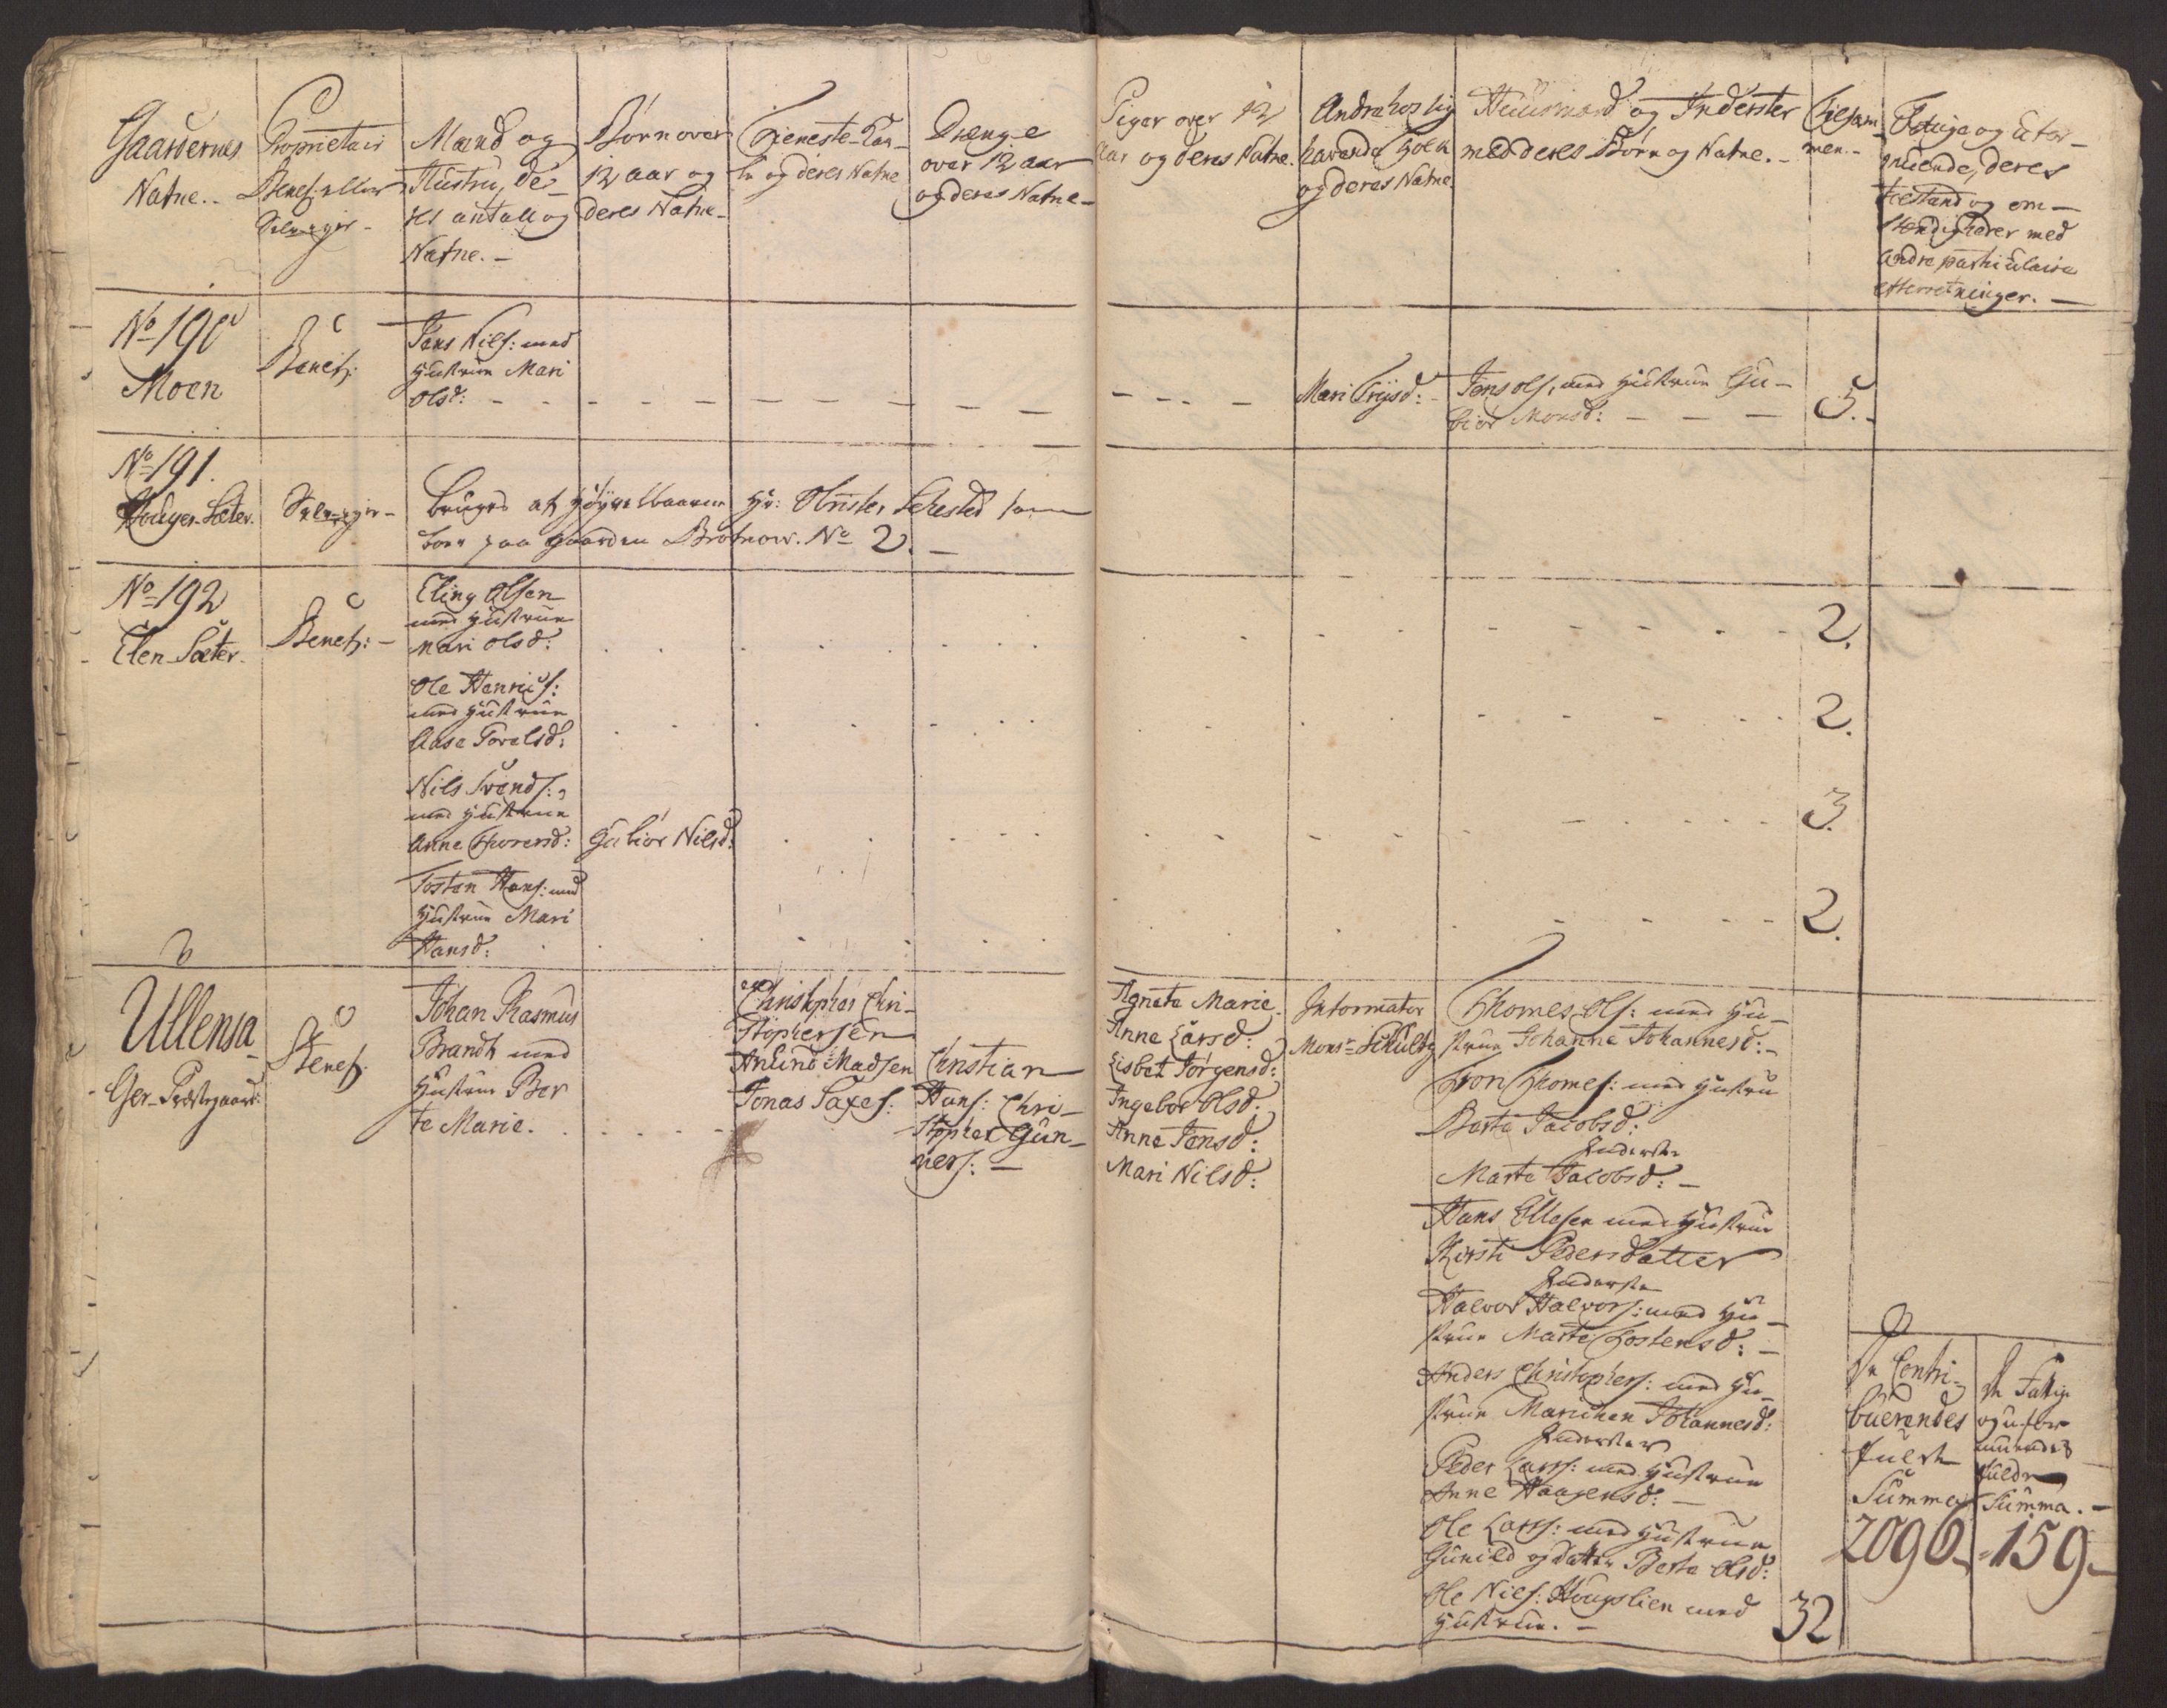 Gaardernes
Natne. -
Proprietair
Benef: eller
Selveyer -
Mænd og
Hustru, de-
res antall og
Natne. -
Børn over
12 aar og
deres Natne -
Tieneste-Kar-
le og deres Natne
Drænge
over 12 aar
og deres Natne -
Piger over 12
aar og deres Natne.
Andre hos sig
havende Folck
og deres Natne
Huusmænd og Inderster
med deres Børn og Natne. -
Tilsam-
men. -
Fattige og Ufor-
muende, deres
tilstand og om-
stændigheder med
andre particulaire
efterretninger. -
No 190
Moen
Benef:
Jens Nils: med
Hustrue Mari
Ols d:
Mari Trijsd: -
Jens Ols: med Hustrue Gu-
biør Monsd: -
5. -
No 191.
Houger-Sæter.
Selveyer -
bruges af Hr: Obrister Sehested som
boer paa Gaarden Brotnow. No 2. -
No 192
Elen-Sæter.
Benef: -
Eling Olsen
med Hustrue
Mari Olsd:
2.
Ole Henrics:
med Hustrue
Aase Torelsd:
2.
Nils Svends:
med Hustrue
Anne Thoresd:
Gubiør Nilsd:
3.
Tosten Hans: med
Hustrue Mari
Hansd:
2.
Ullensa-
Ger-Præstegaard:
Benef:
Johan Rasmus
Brandt med
Hustrue Ber
te Marie.
Christopher Chri-
stophersen
Anund Madsen
Jonas Saxes:
Christian
Hans: Chri-
stopher Gun-
ners: -
Agneta Marie.
Anne Larsd:
Lisbet Jørgensd:
Ingebor Olsd:
Anne Jensd:
Mari Nilsd:
Informator
Monsr Schultz
Thomes Ols: med Hu-
strue Johanne Johannesd: -
Tron Thomes: med Hustru
Barta Jacobsd:
Inderste
Marte Jacobsd: -
Hans Ellesen med Hustrue
Kirsti Pedersdatter
Inderste
Halvor Halvors: med Hu-
strue Marte Tostensd: -
Anders Christophers: med Hu-
strue Marichen Johannesd:
Inderster
Peder Lars: med Hustrue
Anne Haagensd: -
Ole Lars: med Hustrue
Gunild og datter Berta Olsd:
Ole Nils: Hougslien med
Hustrue. -
32
De Contri-
buerendes
fulde
Summa
2096.
De Fattige
og ufor-
muendes
fulde
Summa. -
159.